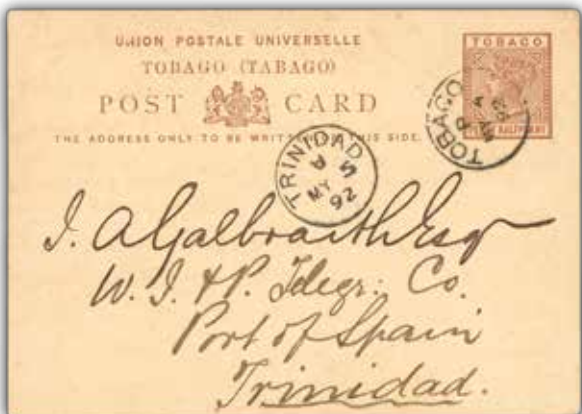 UNION POSTALE UNIVERSELLE
TOBAGO (TABAGO)
POST CARD
THE ADDRESS ONLY TO BE WRITTEN THIS SIDE.
TOBAGO
HALFPENNY
TOBAGO
A
TRINIDAD
A
5
MY
92
J. A Galbraith Esqr
W. I. & P. Telegr. Co.
Port of Spain
Trinidad.